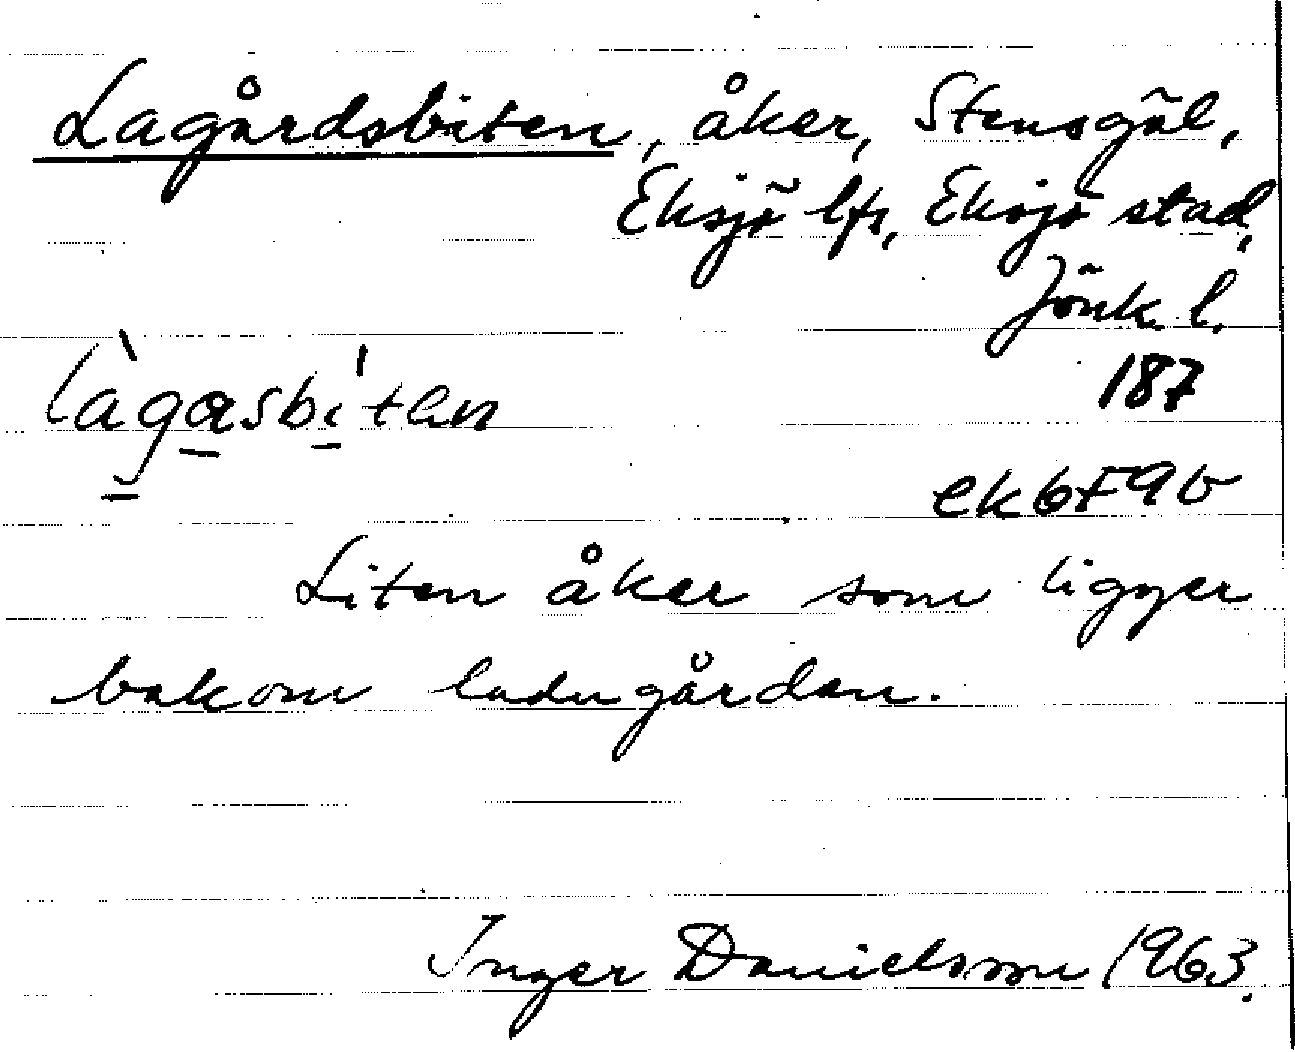 Lagårdsbiten, åker, Stensgöl,
Eksjö lfs, Eksjö stad,
Jönk. l.
187
làgasbi'tən
ek 6F9b
Liten åker som ligger
bakom ladugården.
Inger Danielsson 1963.